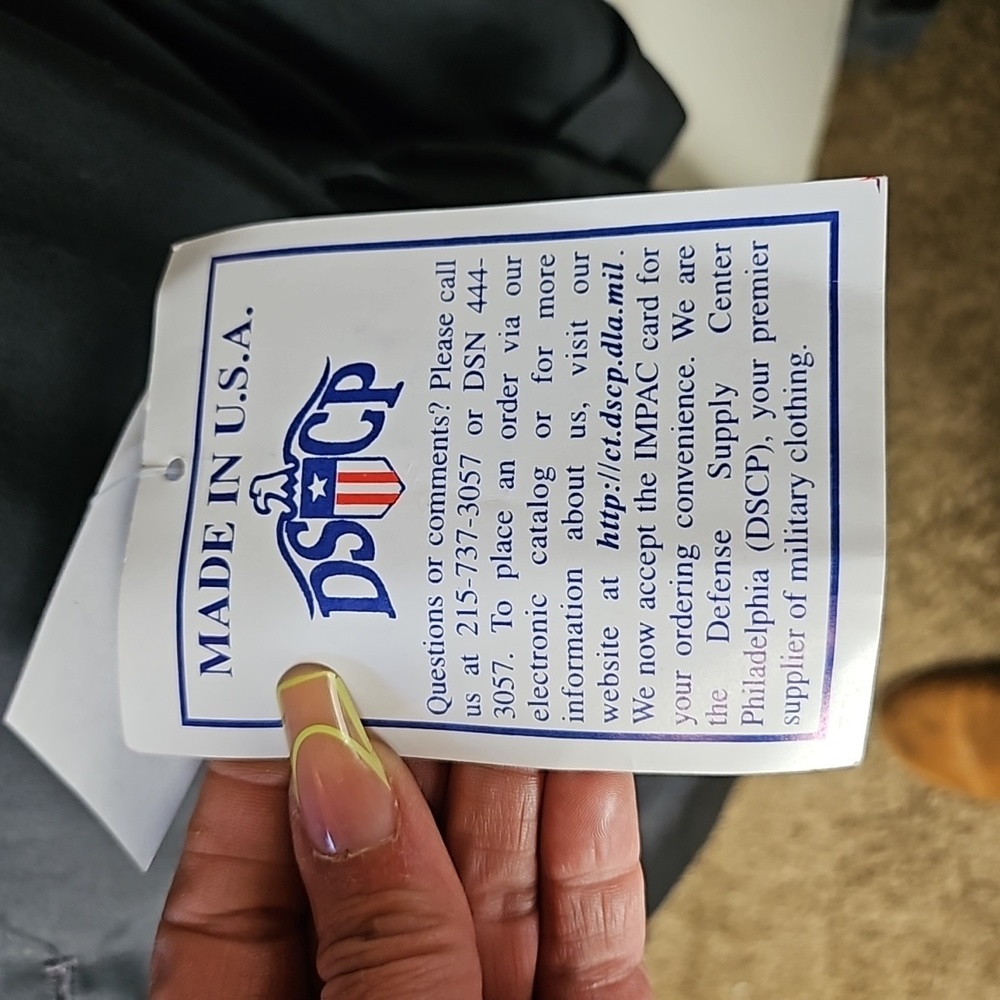 MADE IN U.S.A.
DSCP
Questions or comments? Please call
us at 215-737-3057 or DSN 444-
3057. To place an order via our
electronic catalog or for more
information about us, visit our
website at http://ct.dscp.dla.mil.
We now accept the IMPAC card for
your ordering convenience. We are
the Defense Supply Center
Philadelphia (DSCP), your premier
supplier of military clothing.